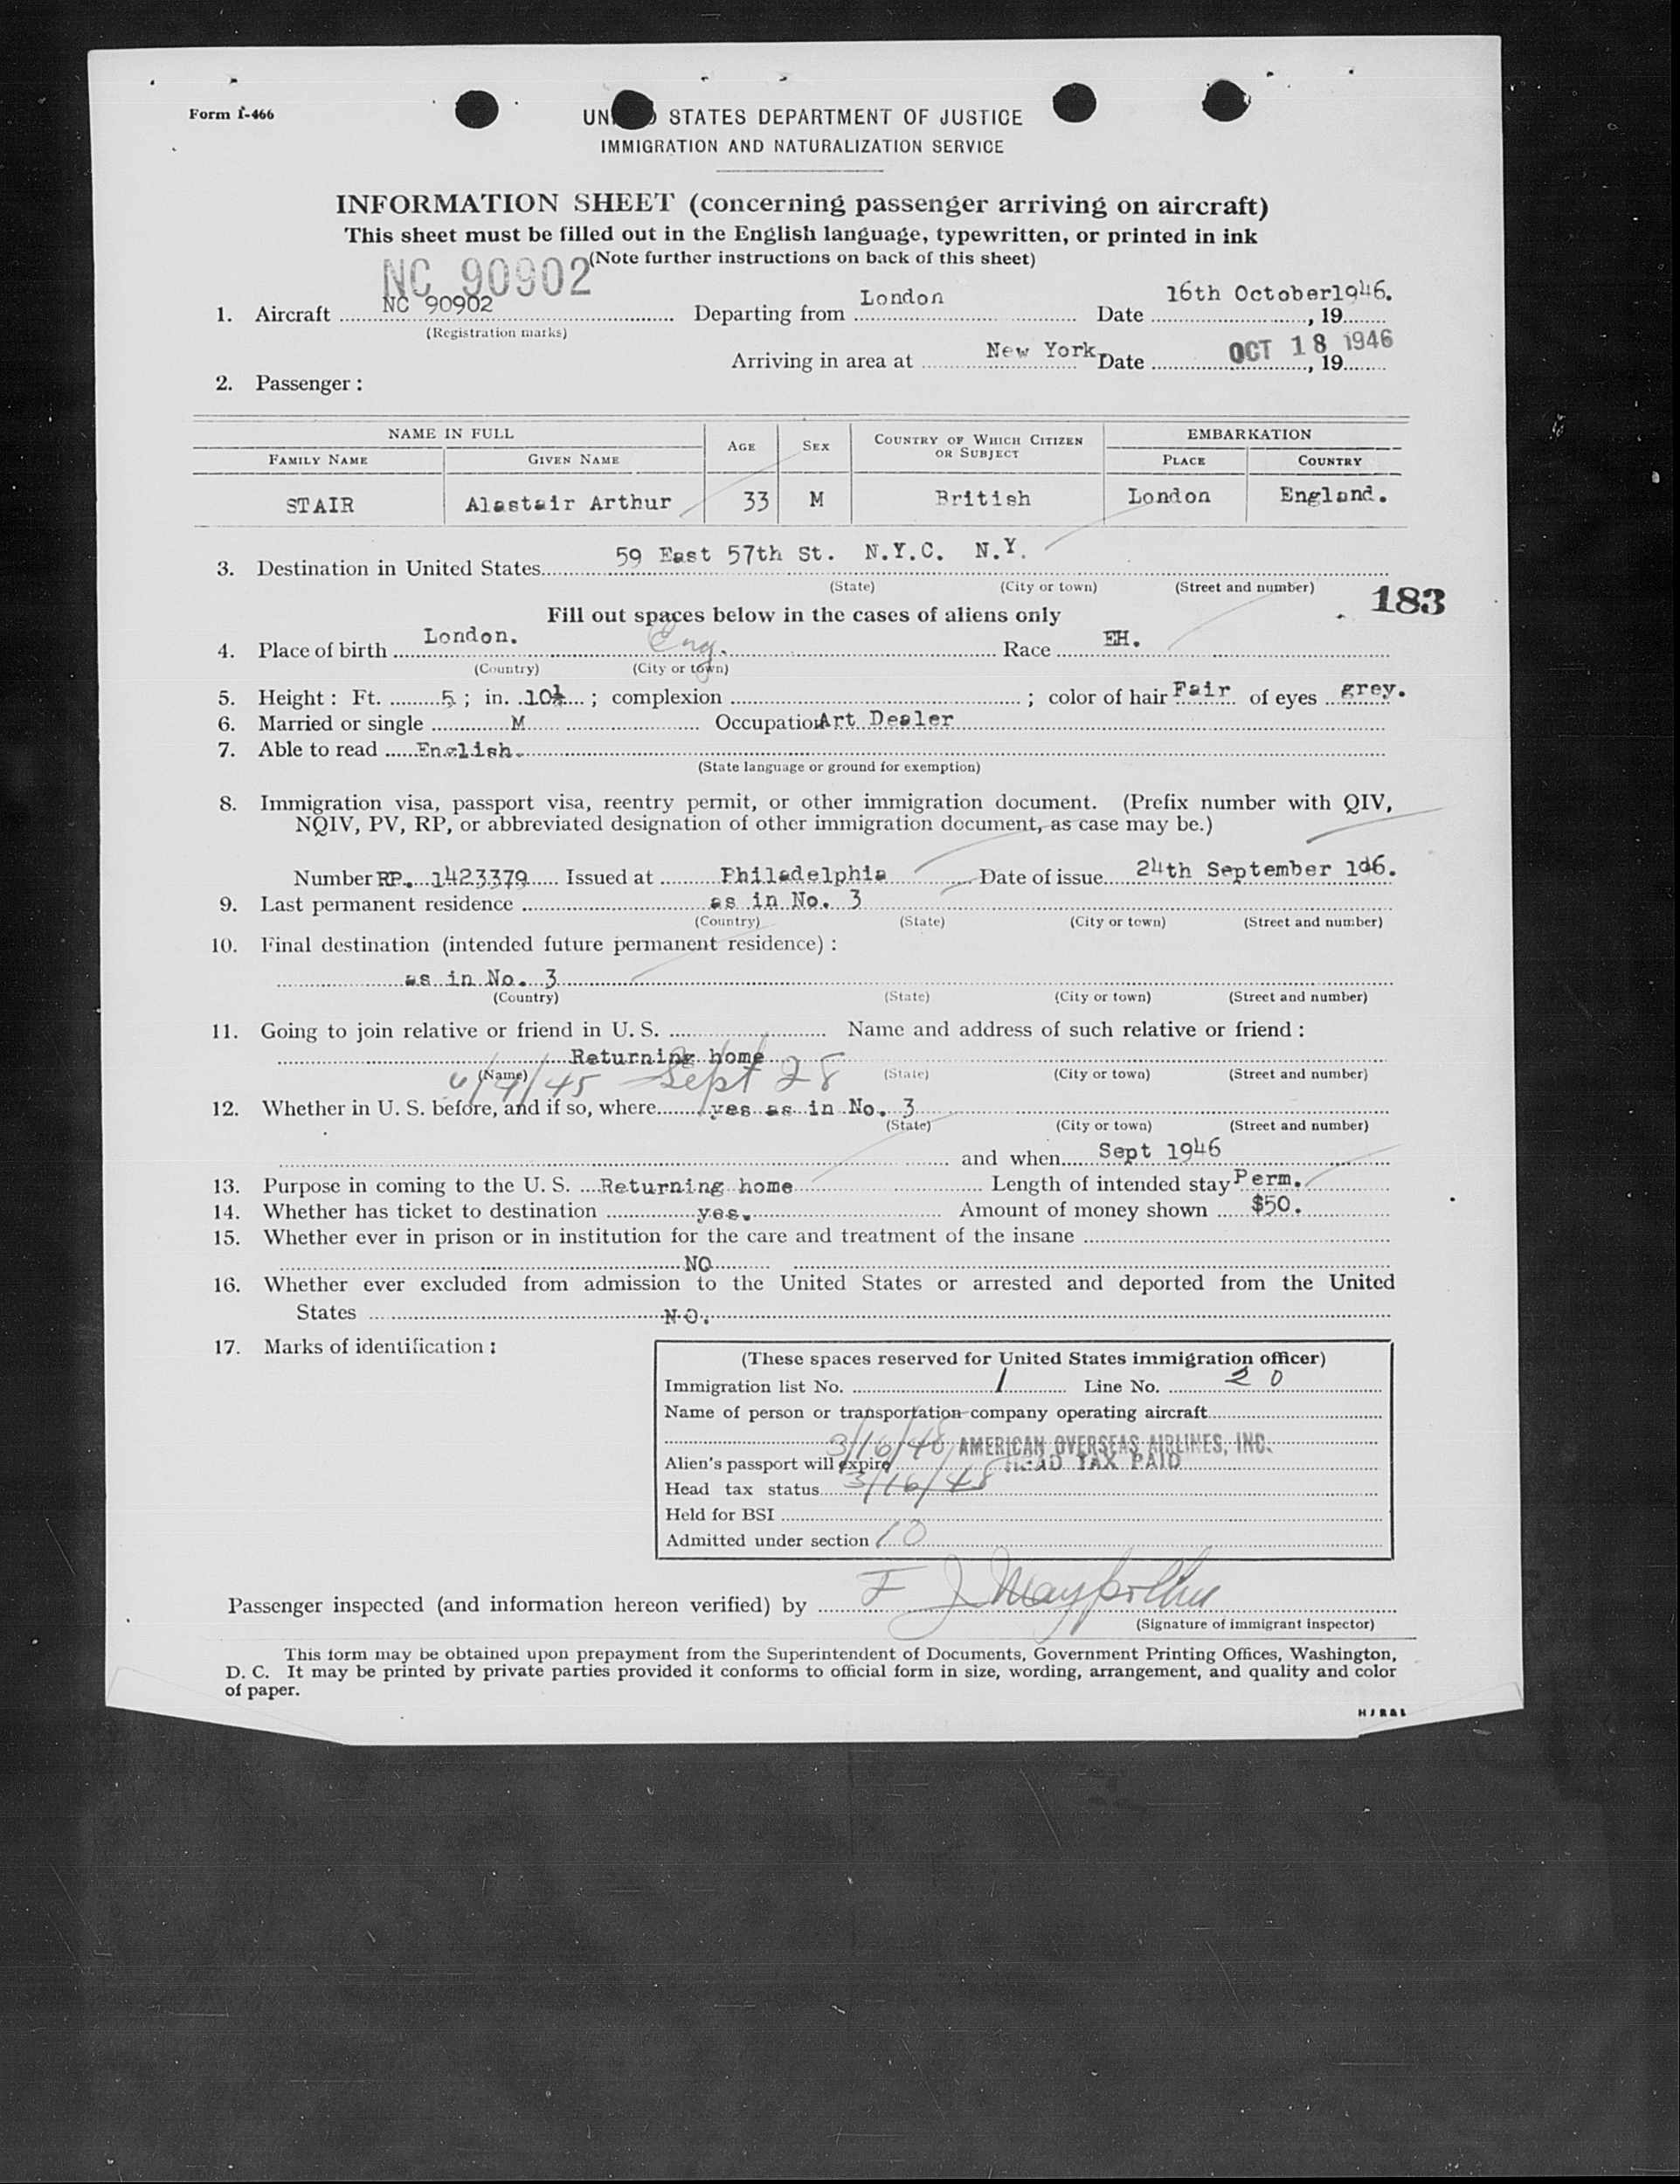 Form I-466
UN STATES DEPARTMENT OF JUSTICE
IMMIGRATION AND NATURALIZATION SERVICE
INFORMATION SHEET (concerning passenger arriving on aircraft)
This sheet must be filled out in the English language, typewritten, or printed in ink
(Note further instructions on back of this sheet)
NC 90902
1. Aircraft NC 90902 Departing from London Date 16th October1946. , 19
(Registration marks)
Arriving in area at New York Date OCT 18 1946 , 19
2. Passenger :
NAME IN FULL AGE SEX COUNTRY OF WHICH CITIZEN OR SUBJECT EMBARKATION
FAMILY NAME GIVEN NAME PLACE COUNTRY
STAIR Alastair Arthur 33 M British London England.
3. Destination in United States 59 East 57th St. N.Y.C. N.Y.
(State) (City or town) (Street and number)
183
Fill out spaces below in the cases of aliens only
4. Place of birth London. Eng. Race EH.
(Country) (City or town)
5. Height : Ft. 5 ; in. 10½ ; complexion ; color of hair Fair of eyes grey.
6. Married or single M Occupation Art Dealer
7. Able to read English.
(State language or ground for exemption)
8. Immigration visa, passport visa, reentry permit, or other immigration document. (Prefix number with QIV,
NQIV, PV, RP, or abbreviated designation of other immigration document, as case may be.)
Number RP. 1423379 Issued at Philadelphia Date of issue 24th September 1946.
9. Last permanent residence as in No. 3
(Country) (State) (City or town) (Street and number)
10. Final destination (intended future permanent residence) :
as in No. 3
(Country) (State) (City or town) (Street and number)
11. Going to join relative or friend in U. S. Name and address of such relative or friend :
Returning home
(Name) (State) (City or town) (Street and number)
6/4/45 Sept 28
12. Whether in U. S. before, and if so, where yes as in No. 3
(State) (City or town) (Street and number)
and when Sept 1946
13. Purpose in coming to the U. S. Returning home Length of intended stay Perm.
14. Whether has ticket to destination yes. Amount of money shown $50.
15. Whether ever in prison or in institution for the care and treatment of the insane
NO
16. Whether ever excluded from admission to the United States or arrested and deported from the United
States NO.
17. Marks of identification :
(These spaces reserved for United States immigration officer)
Immigration list No. 1 Line No. 20
Name of person or transportation company operating aircraft
3/16/48 AMERICAN OVERSEAS AIRLINES, INC.
Alien's passport will expire HEAD TAX PAID
Head tax status 3/16/48
Held for BSI
Admitted under section 10
Passenger inspected (and information hereon verified) by F J
(Signature of immigrant inspector)
This form may be obtained upon prepayment from the Superintendent of Documents, Government Printing Offices, Washington,
D. C. It may be printed by private parties provided it conforms to official form in size, wording, arrangement, and quality and color
of paper.